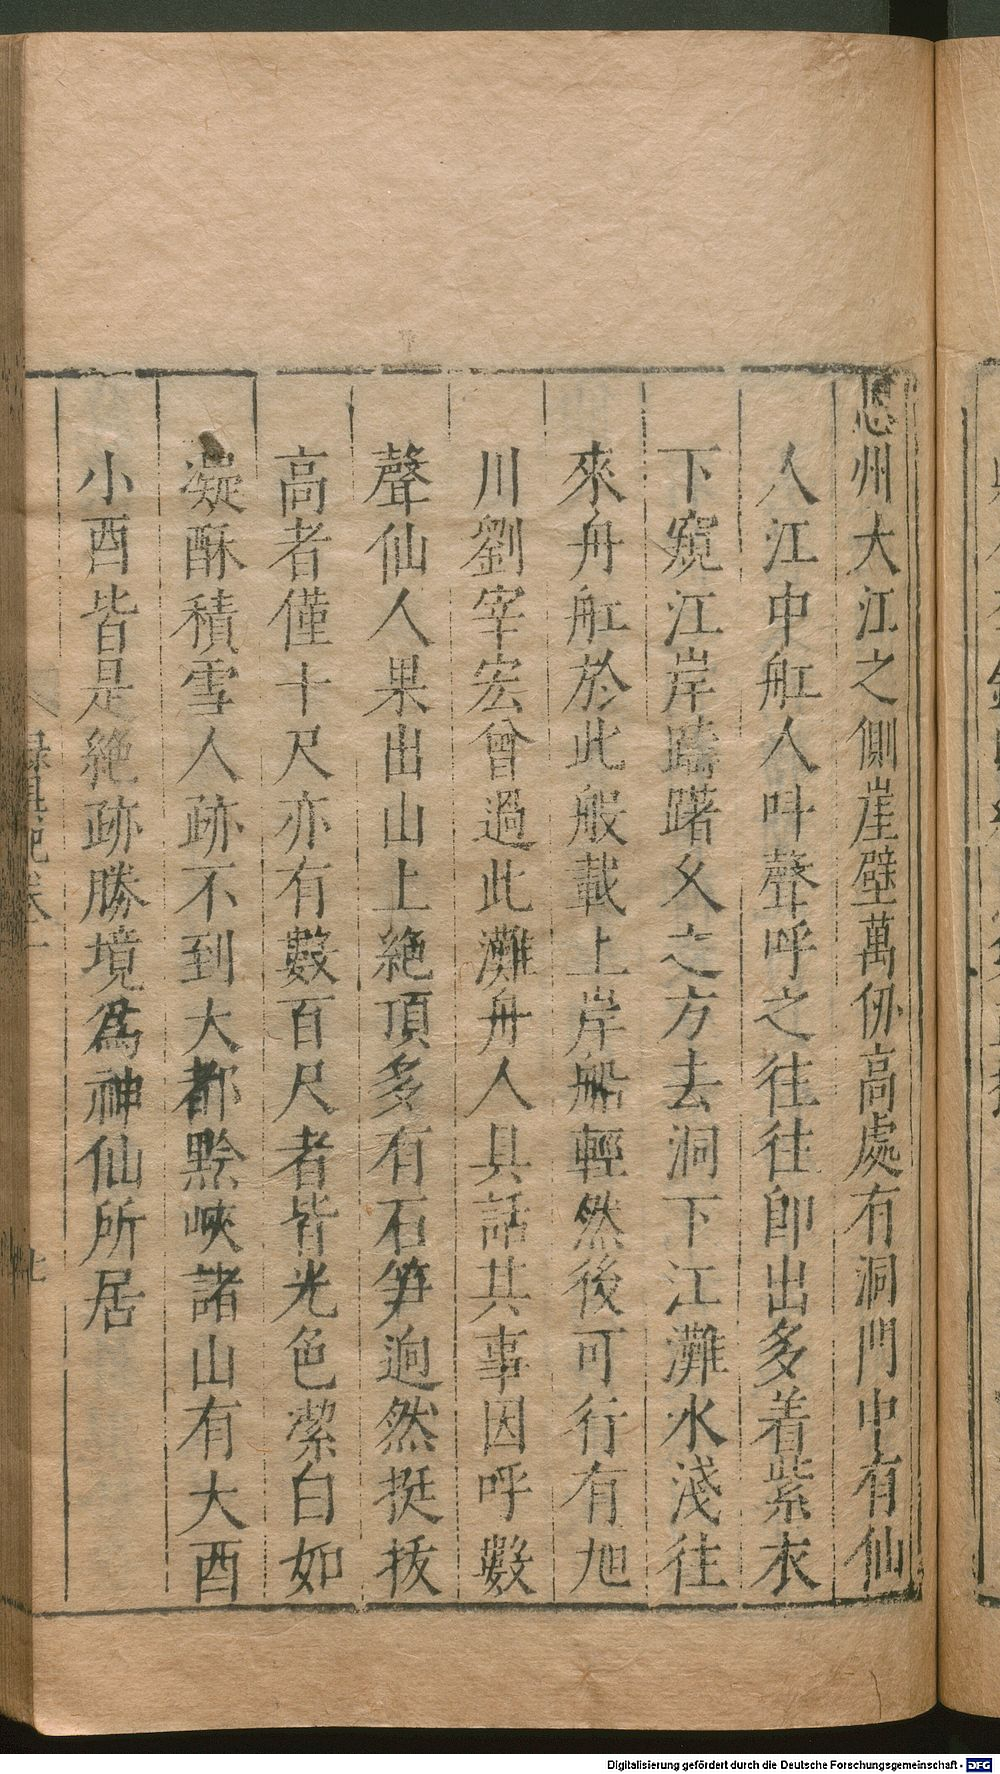 恩州大江之側崖壁萬仭高處有洞門中有仙
人江中舡人呌聲呼之往往即出多着紫衣
下窺江岸躊躇久之方去洞下江灘水淺往
來舟舡於此般載上岸船輕然後可行有旭
川劉宰宏曾過此灘舟人具話其事因呼數
聲仙人果出山上絶頂多有石笋逈然挺拔
高者僅十尺亦有數百尺者皆光色潔白如
凝酥積雪人跡不到大都黔峽諸山有大酉
小酉皆是絶跡勝境爲神仙所居
錄異記卷一
Digitalisierung gefördert durch die Deutsche Forschungsgemeinschaft - DFG